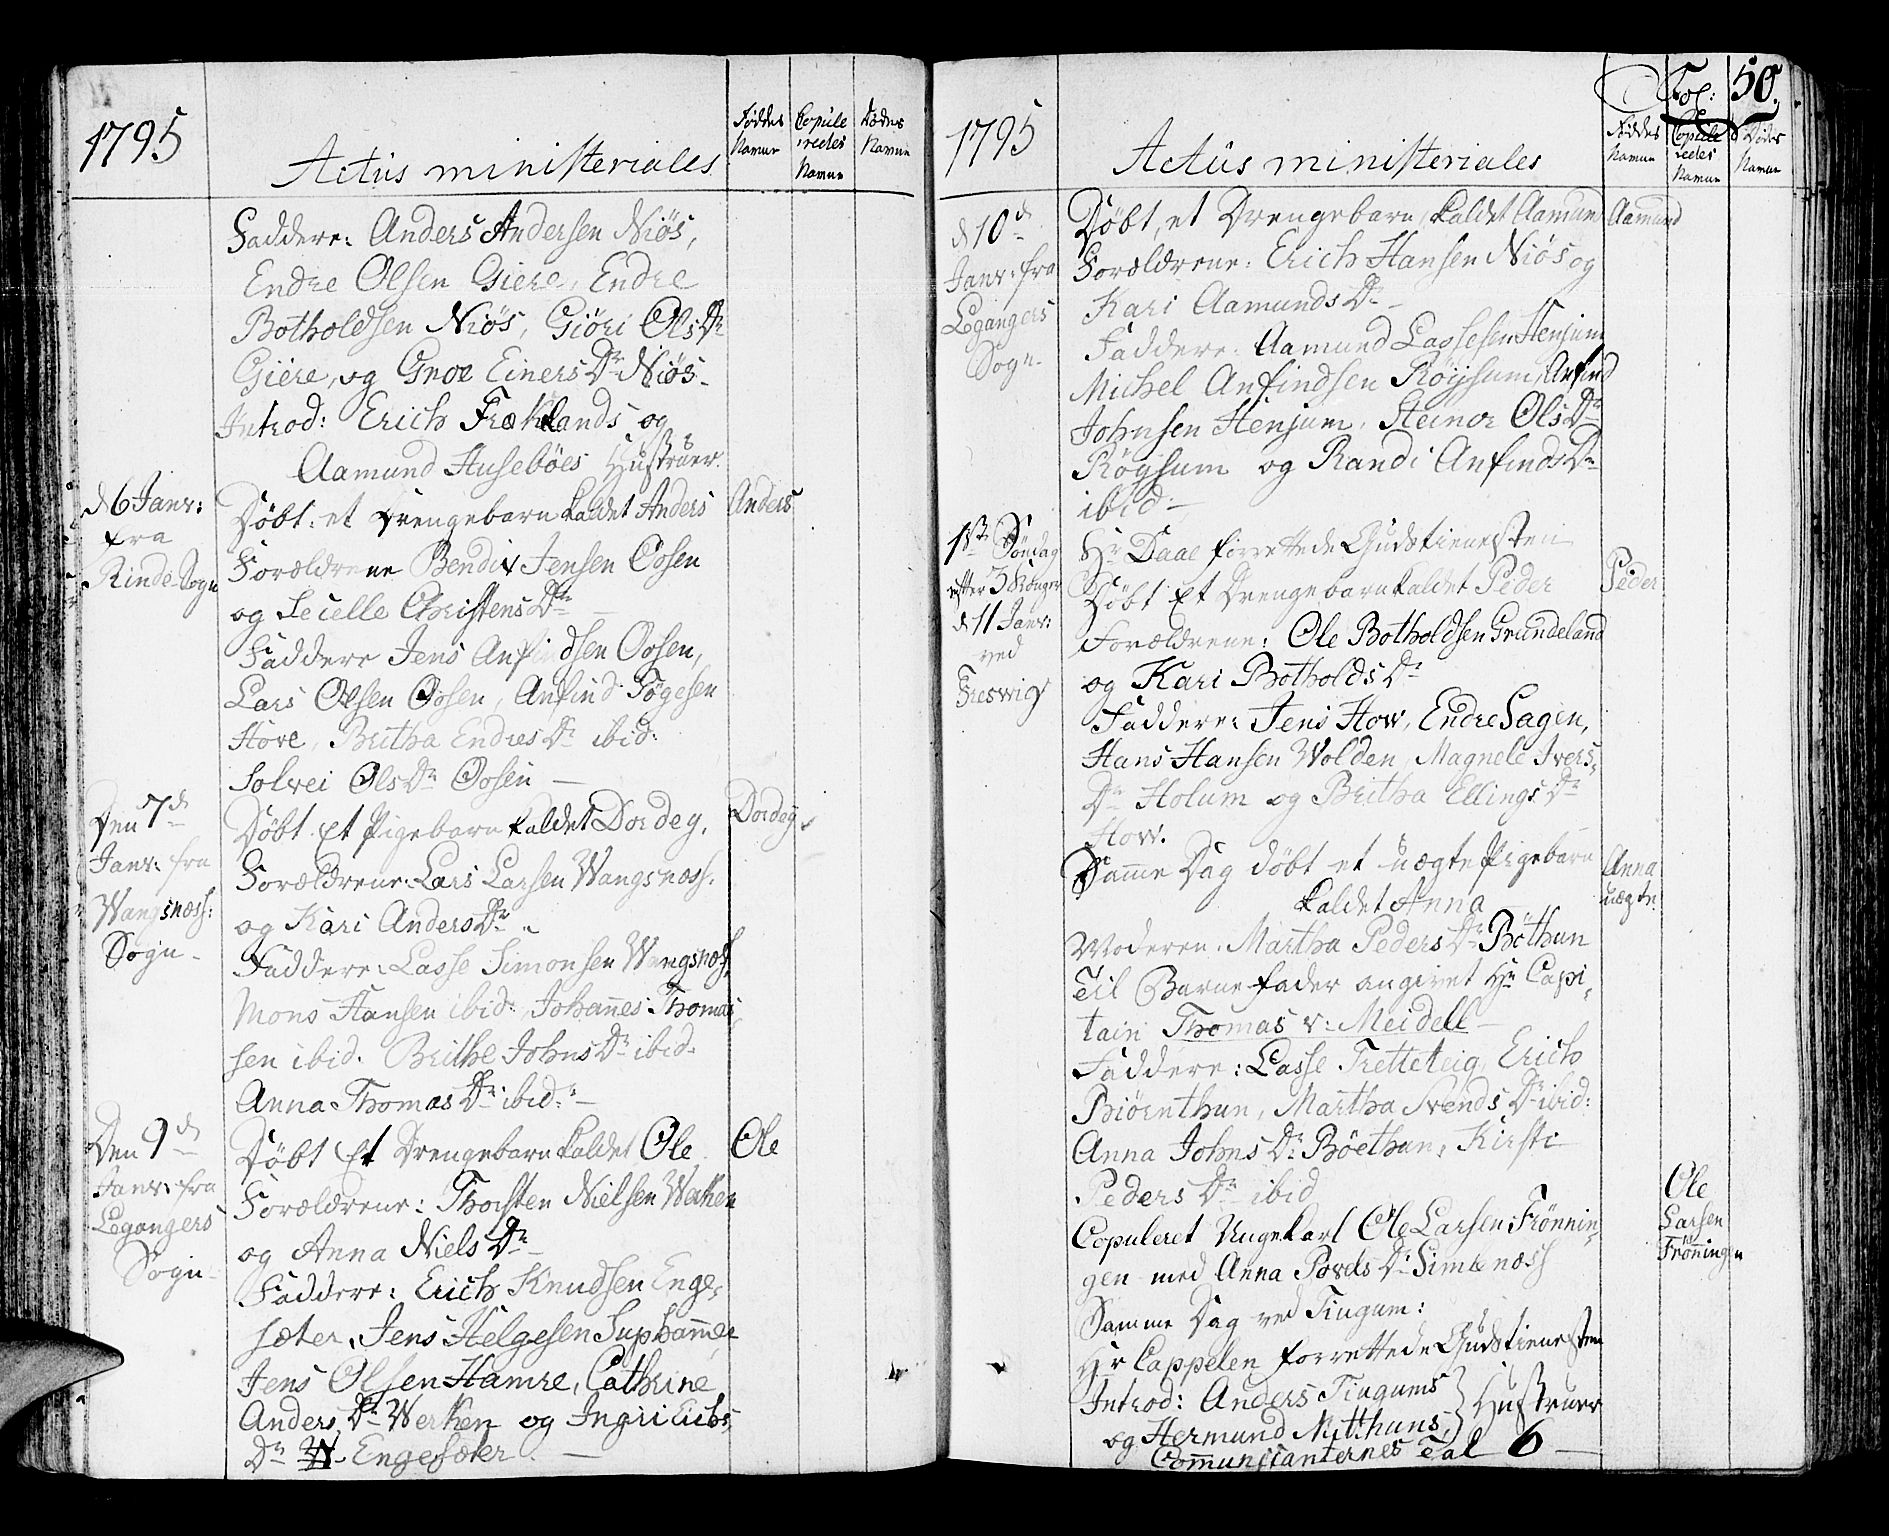 1795
Actus ministeriales
Føddes Navne
Copule redes Navne
Dødes Navne
Faddere: Anders Andersen Niøs,
Endre Olsen Giere, Endre
Botholdsen Niøs, Giøri Ols Dr
Giere, og Gnoe Einers Dr Niøs.
Introd: Erich Fræklands og
Aamund Husebøes Hustruer.
d 6 Janv:
fra
Rinde Sogn
Døbt: et Drengebarn kaldet Anders
Anders
Forældrene Bendix Jensen Oosen
og Secelle Christens Dtr —
Faddere Jens Anfindsen Oosen,
Lars Olsen Oosen, Anfind Tøgesen
Hove, Britha Endres Dr ibid:
Solvei Ols Dr Oosen —
Den 7d
Janv: fra
Wangsnæss:
Sogn -
Døbt Et Pigebarn kaldet Dordey.
Dordey
Forældrene: Lars Larsen Wangsnæss:
og Kari Anders Dr
Faddere: Lasse Simonsen Wangsnæss,
Mons Hansen ibid:, Johannes Thomas
sen ibid. Brithe Johns Dr ibid.
Anna Thomas Dr ibid: —
Den 9d
Janv: fra
Legangers
Sogn -
Døbt Et Drengebarn kaldet Ole
Ole
Forældrene: Thorsten Nielsen Werken
og Anna Niels Dr
Faddere: Erich Knudsen Enge,
sæter, Jens Helgesen Suphamer
Jens Olsen Hamre, Cathrine
Anders Dr Werken og Ingri Eichs,
Dr W. Engesæter. —
Fol: 50.
1795
Actus ministeriales
Føddes Navne
Copule redes Navne
Dødes Navne
d 10d
Janv: fra
Legangers
Sogn -
Døbt, et Drengebarn, kaldet Aamund
Aamund
Forældrene: Erich Hansen Niøs og
Kari Aamunds Dr —
Faddere: Aamund Lassesen Henjum
Michel Anfindsen Røysum, Anfind
Johnsen Henjum, Steinor Ols Dr
Røysum og Randi Anfinds Dr
ibid —
1ste Søndag
efter 3 Konger
d 11 Janv:
ved
Freswig
Hr Daae forrettede Gudstienesten
Døbt Et Drengebarn kaldet Peder
Peder
Forældrene: Ole Botholdsen Grindeland
og Kari Botholds Dr
Faddere: Jens How, Endre Sagen,
Hans Hansen Wolden, Magnele Ivers,
Dr Holum og Britha Ellings Dr
How.
Samme Dag døbt et uægte Pigebarn
kaldet Anna
Anna
uægte
Moderen: Martha Peders Dr Bøthun
Til Barnefader angivet Hr Capi,
tain Thomas v: Meidell —
Faddere: Lasse Tretteteig, Erich
Biørnthun, Martha Svends Dr ibid:
Anna Johns Dr Bøethun, Kirsti
Peders Dr ibid
Copuleret Ungekarl Ole Larsen Frønnin,
gen med Anna Povels Dr Simlenæss
Ole
Larsen
Frønningen
Samme Dag ved Tiugum:
Hr Cappelen forrettede Gudstienesten
Introd: Anders Tiugums
og Hermund Mitthuns,
Hustruer
Communicanternes Tal 6 —